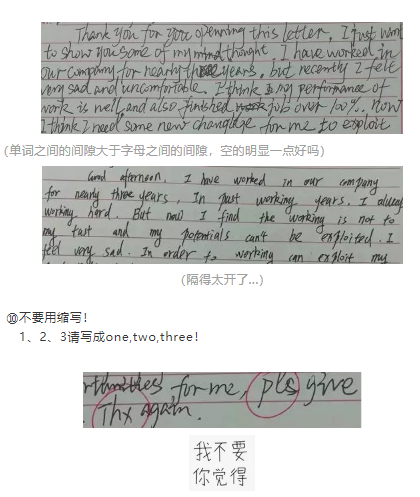 Thank you for you openning this letter, I just want
to show you some of my mind thought I have worked in
our company for nearly three years, but recently I felt
very sad and uncomfortable. I think my performance of
work is well, and also finished job over 100%. Now
I think I need some new for me to exploit
(单词之间的间隙大于字母之间的间隙，空的明显一点好吗)
Good afternoon. I have worked in our company
for nearly three years, In past working years. I always
working hard. But now I find the working is not to
my tast and my potentials can't be exploited. I
feel very sad. In order to working can exploit my
(隔得太开了...)
⑩不要用缩写！
1、2、3请写成one,two,three！
for me, pls give
Thx again.
我不要
你觉得